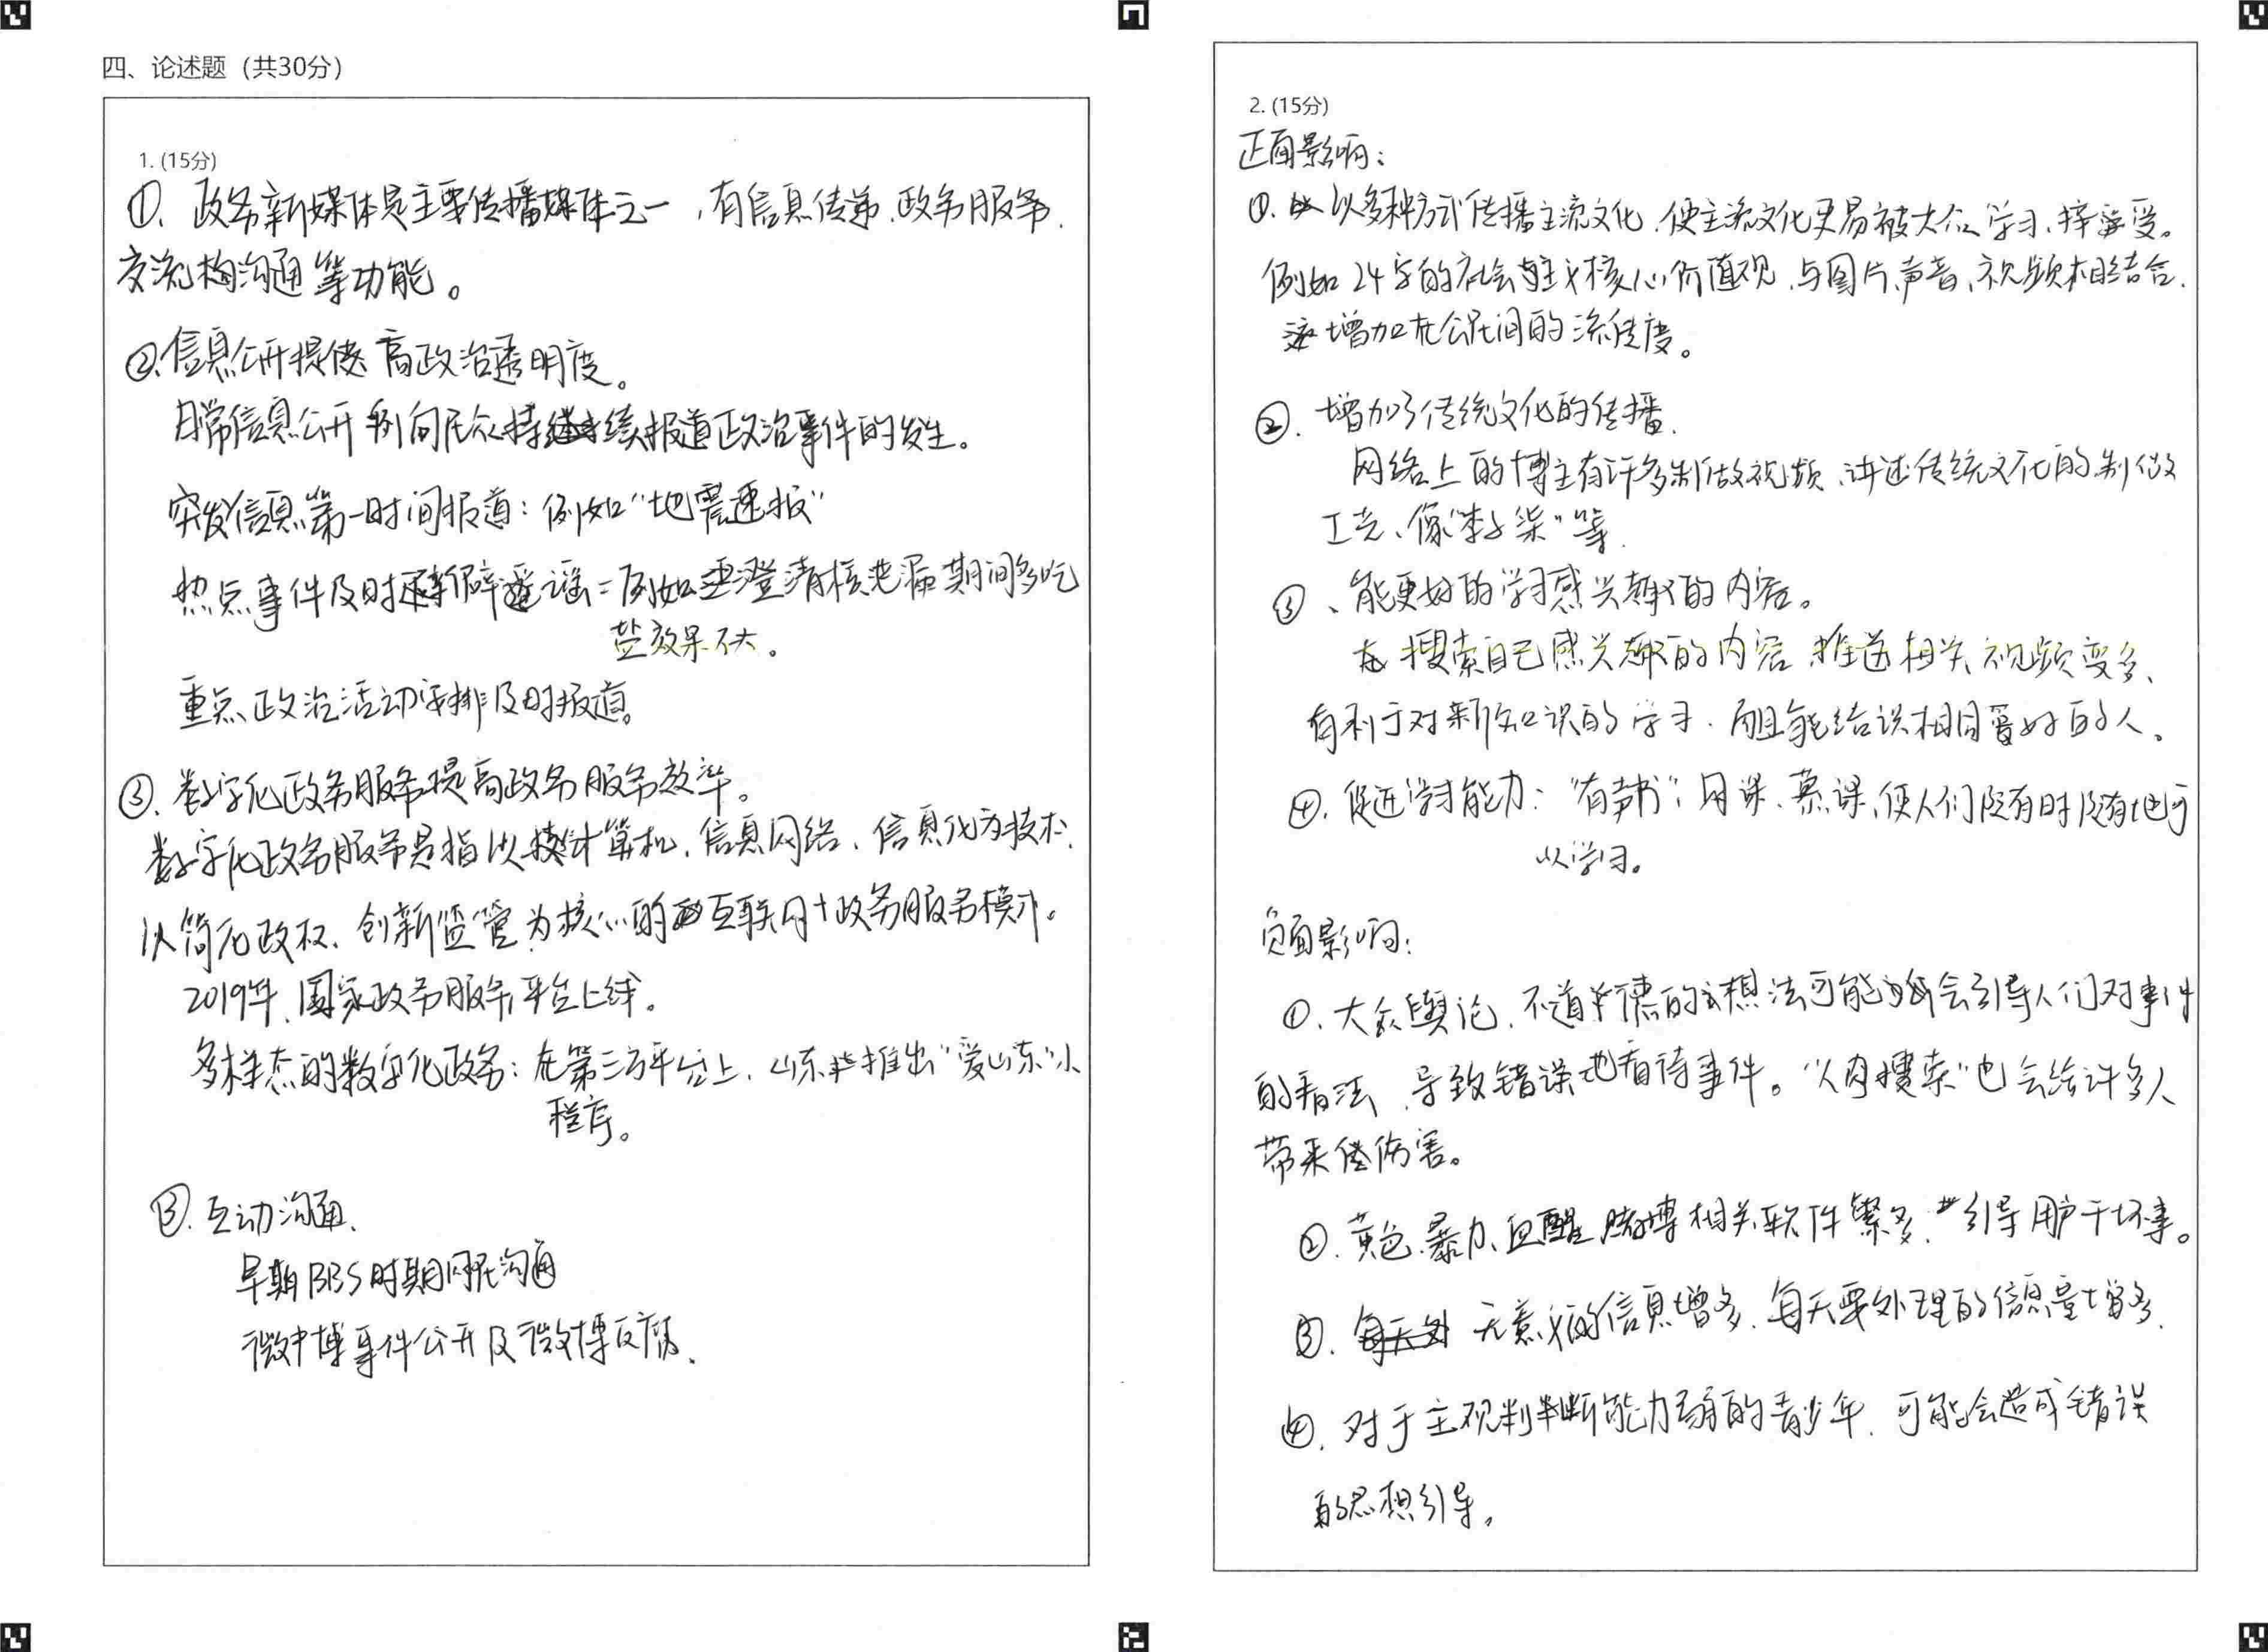 四、论述题（共30分）
1. (15分)
①、政务新媒体是主要传播媒体之一，有信息传递、政务服务、
交流沟通等功能。
②、信息公开提高政治透明度。
日常信息公开向民众持续报道政治事件的发生。
突发信息第一时间报道：例如“地震速报”
热点事件及时辟谣：例如澄清核泄漏期间多吃
盐效果不大。
重点政治活动安排及时报道。
③、数字化政务服务提高政务服务效率。
数字化政务服务是指以计算机、信息网络、信息化为技术、
以简化政权、创新监管为核心的互联网+政务服务模式。
2019年、国家政务服务平台上线。
多样态的数字化政务：在第三方平台上、山东推出“爱山东”小
程序。
③、互动沟通、
早期BBS时期网民沟通
微博事件公开及微博反腐、
2. (15分)
正面影响：
①、以多种方式传播主流文化、使主流文化更易被大众学习、接受。
例如24字的社会主义核心价值观、与图片、声音、视频相结合、
增加在公民间的流传度。
②、增加了传统文化的传播、
网络上的博主有许多制做视频、讲述传统文化的制做
工艺、像“李子柒”等、
③、能更好的学习感兴趣的内容。
在搜索自己感兴趣的内容、推送相关视频变多、
有利于对新知识的学习、而且能结识相同爱好的人。
④、促进学习能力：“有声书”、网课、慕课、使人们随时随地可
以学习。
负面影响：
①、大众舆论、不道德的想法可能会引导人们对事件
的看法、导致错误地看待事件。“人肉搜索”也会给许多人
带来伤害。
②、黄色、暴力、血腥、赌博相关软件繁多、引导用户干坏事。
③、无意义的信息增多、每天要处理的信息量增多、
④、对于主观判断能力弱的青少年、可能会造成错误
的思想引导。